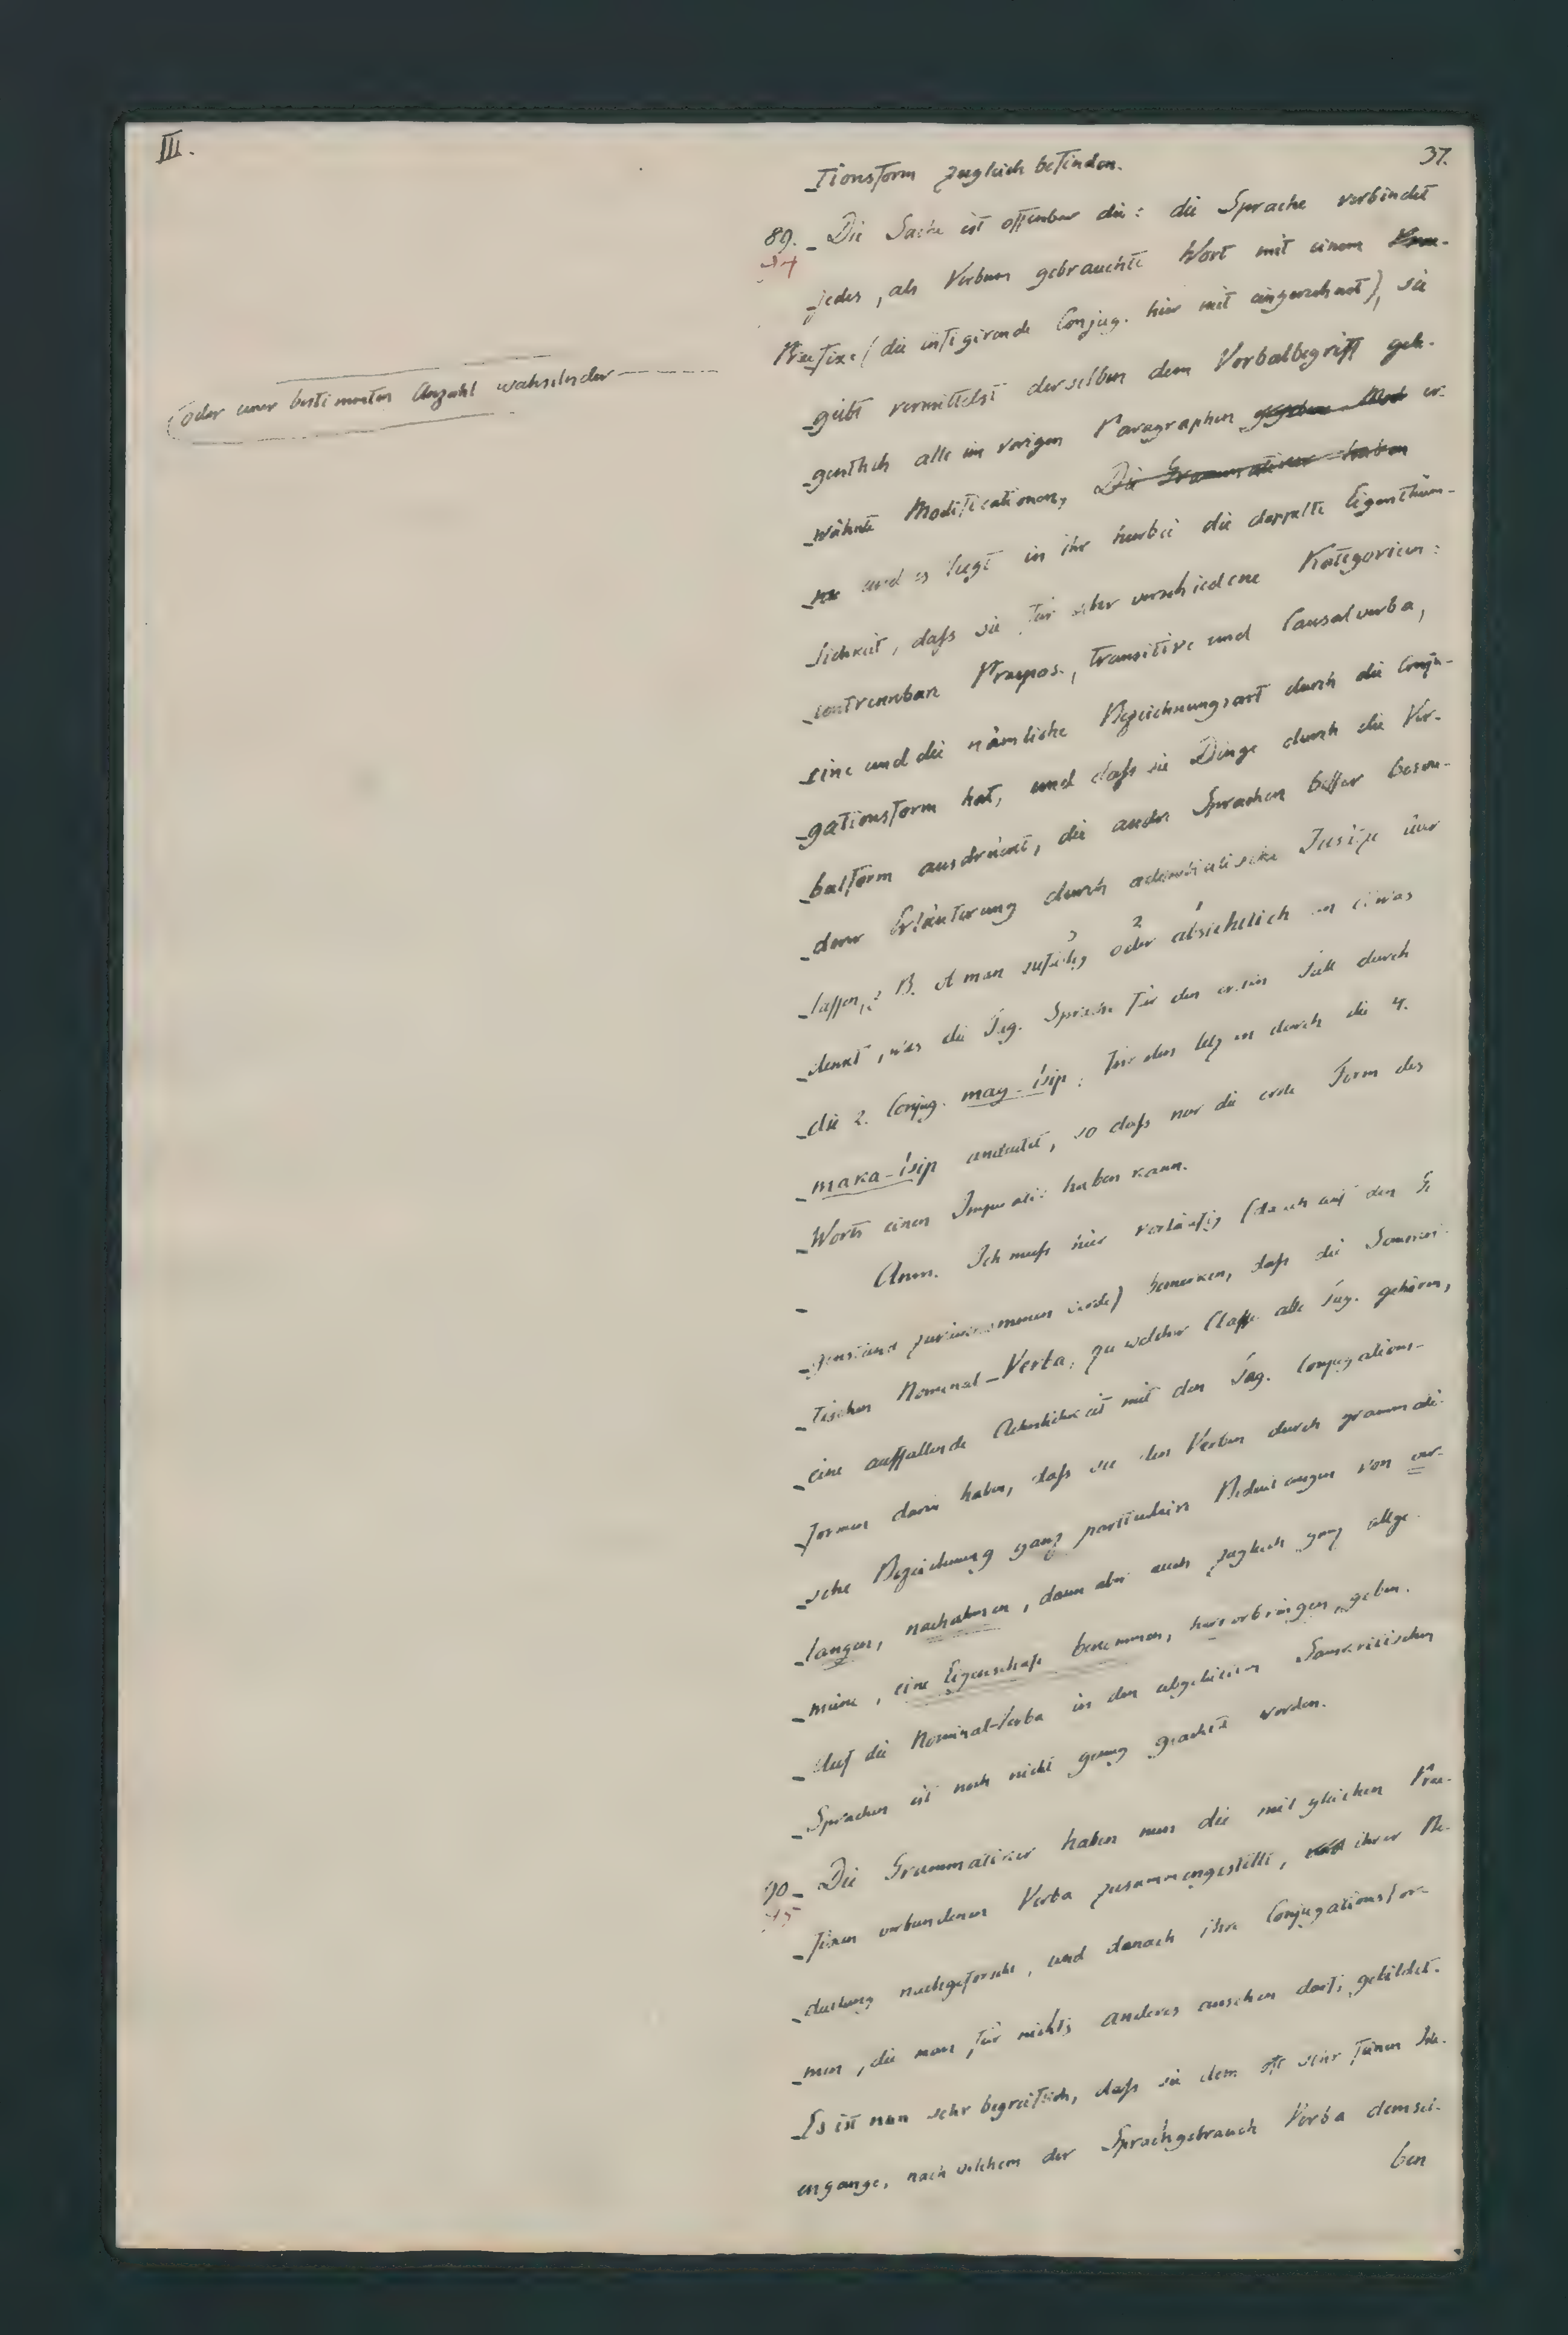 III.
37.
tionsform zugleich befinden.
89. Die Sache ist offenbar die: die Sprache verbindet
jedes, als Verbum gebrauchte Wort mit einem
(oder einer bestimmten Anzahl wechselnder
Praefixe (die infigirende Conjug. hier mit eingerechnet), sie
giebt vermittelst derselben dem Verbalbegriff gele-
gentlich alle im vorigen Paragraphen er-
wähnte Modificationen, Die Grammatiker haben
und es liegt in ihr hierbei die doppelte Eigenthüm-
lichkeit, daſs sie für sehr verschiedene Kategorieen:
untrennbare Praepos., transitive und Causalverba,
eine und die nämliche Bezeichnungsart durch die Conju-
gationsform hat, und daſs sie Dinge durch die Ver-
balform ausdrückt, die andre Sprachen beſser beson-
derer Erläuterung durch adverbialische Zusätze über
laſsen, z. B. ob man zufällig oder absichtlich an etwas
3 2 1
denkt, was die Tag. Sprache für den ersten Fall durch
die 2. Conjug. mag-ísip, für den letzten durch die 4.
maka-ísip andeutet, so daſs nur die erste Form des
Worts einen Imperativ haben kann.
Anm. Ich muſs hier vorläufig (da ich auf den Ge
genstand zurückkommen werde) bemerken, daſs die Sanscri-
tischen Nominal-Verba, zu welcher Claſse alle Tag. gehören,
eine auffallende Aehnlichkeit mit den Tag. Conjugations-
formen darin haben, daſs sie den Verben durch grammati-
sche Bezeichnung ganz particulaire Bedeutungen von ver-
langen, nachahmen, dann aber auch zugleich ganz allge-
meine, eine Eigenschaft benemmen, hervorbringen, geben.
Auf die Nominal-Verba in den abgeleiteten Sanskritischen
Sprachen ist noch nicht genug geachtet worden.
90 Die Grammatiker haben nun die mit gleichen Prae-
fixen verbundenen Verba zusammengestellt, ihrer Be-
deutung nachgeforscht, und danach ihre Conjugationsfor-
men, die man für nichts anderes ansehen darf, gebildet.
Es ist nun sehr begreiflich, daſs sie dem oft sehr feinen Ide-
engange, nach welchem der Sprachgebrauch Verba demsel-
ben